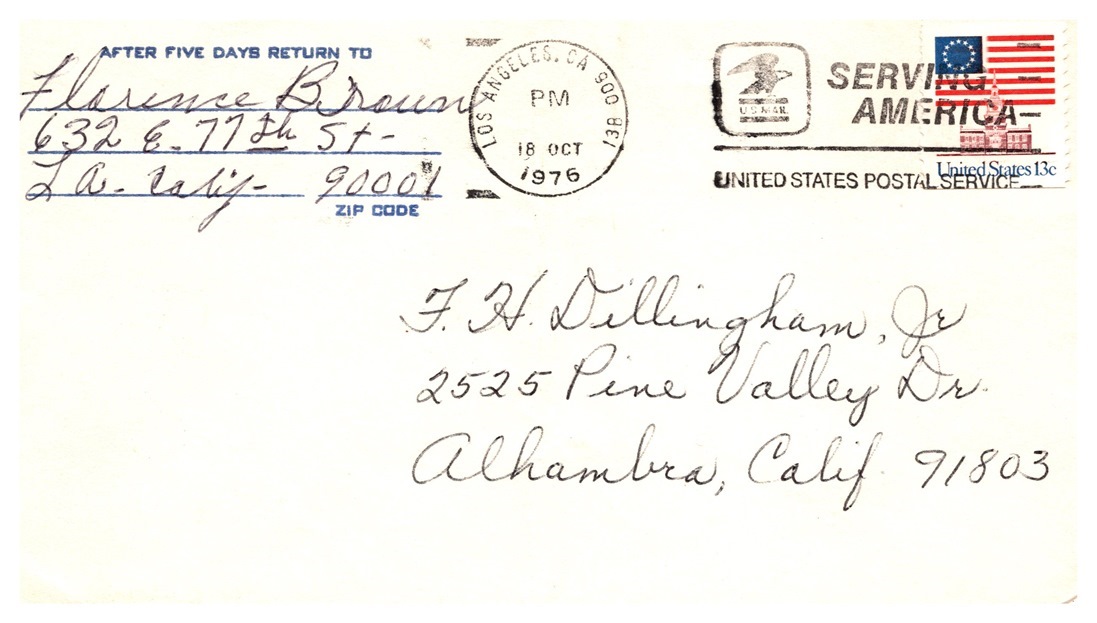 AFTER FIVE DAYS RETURN TO
Florence Brown
632 E. 77th St-
LA- Calif- 90001
ZIP CODE
LOS ANGELES, CA 900
PM
18 OCT
1976
U.S.MAIL
SERVING
AMERICA
UNITED STATES POSTAL SERVICE
United States 13c
F. H. Dillingham, Jr
2525 Pine Valley Dr.
Alhambra, Calif. 91803